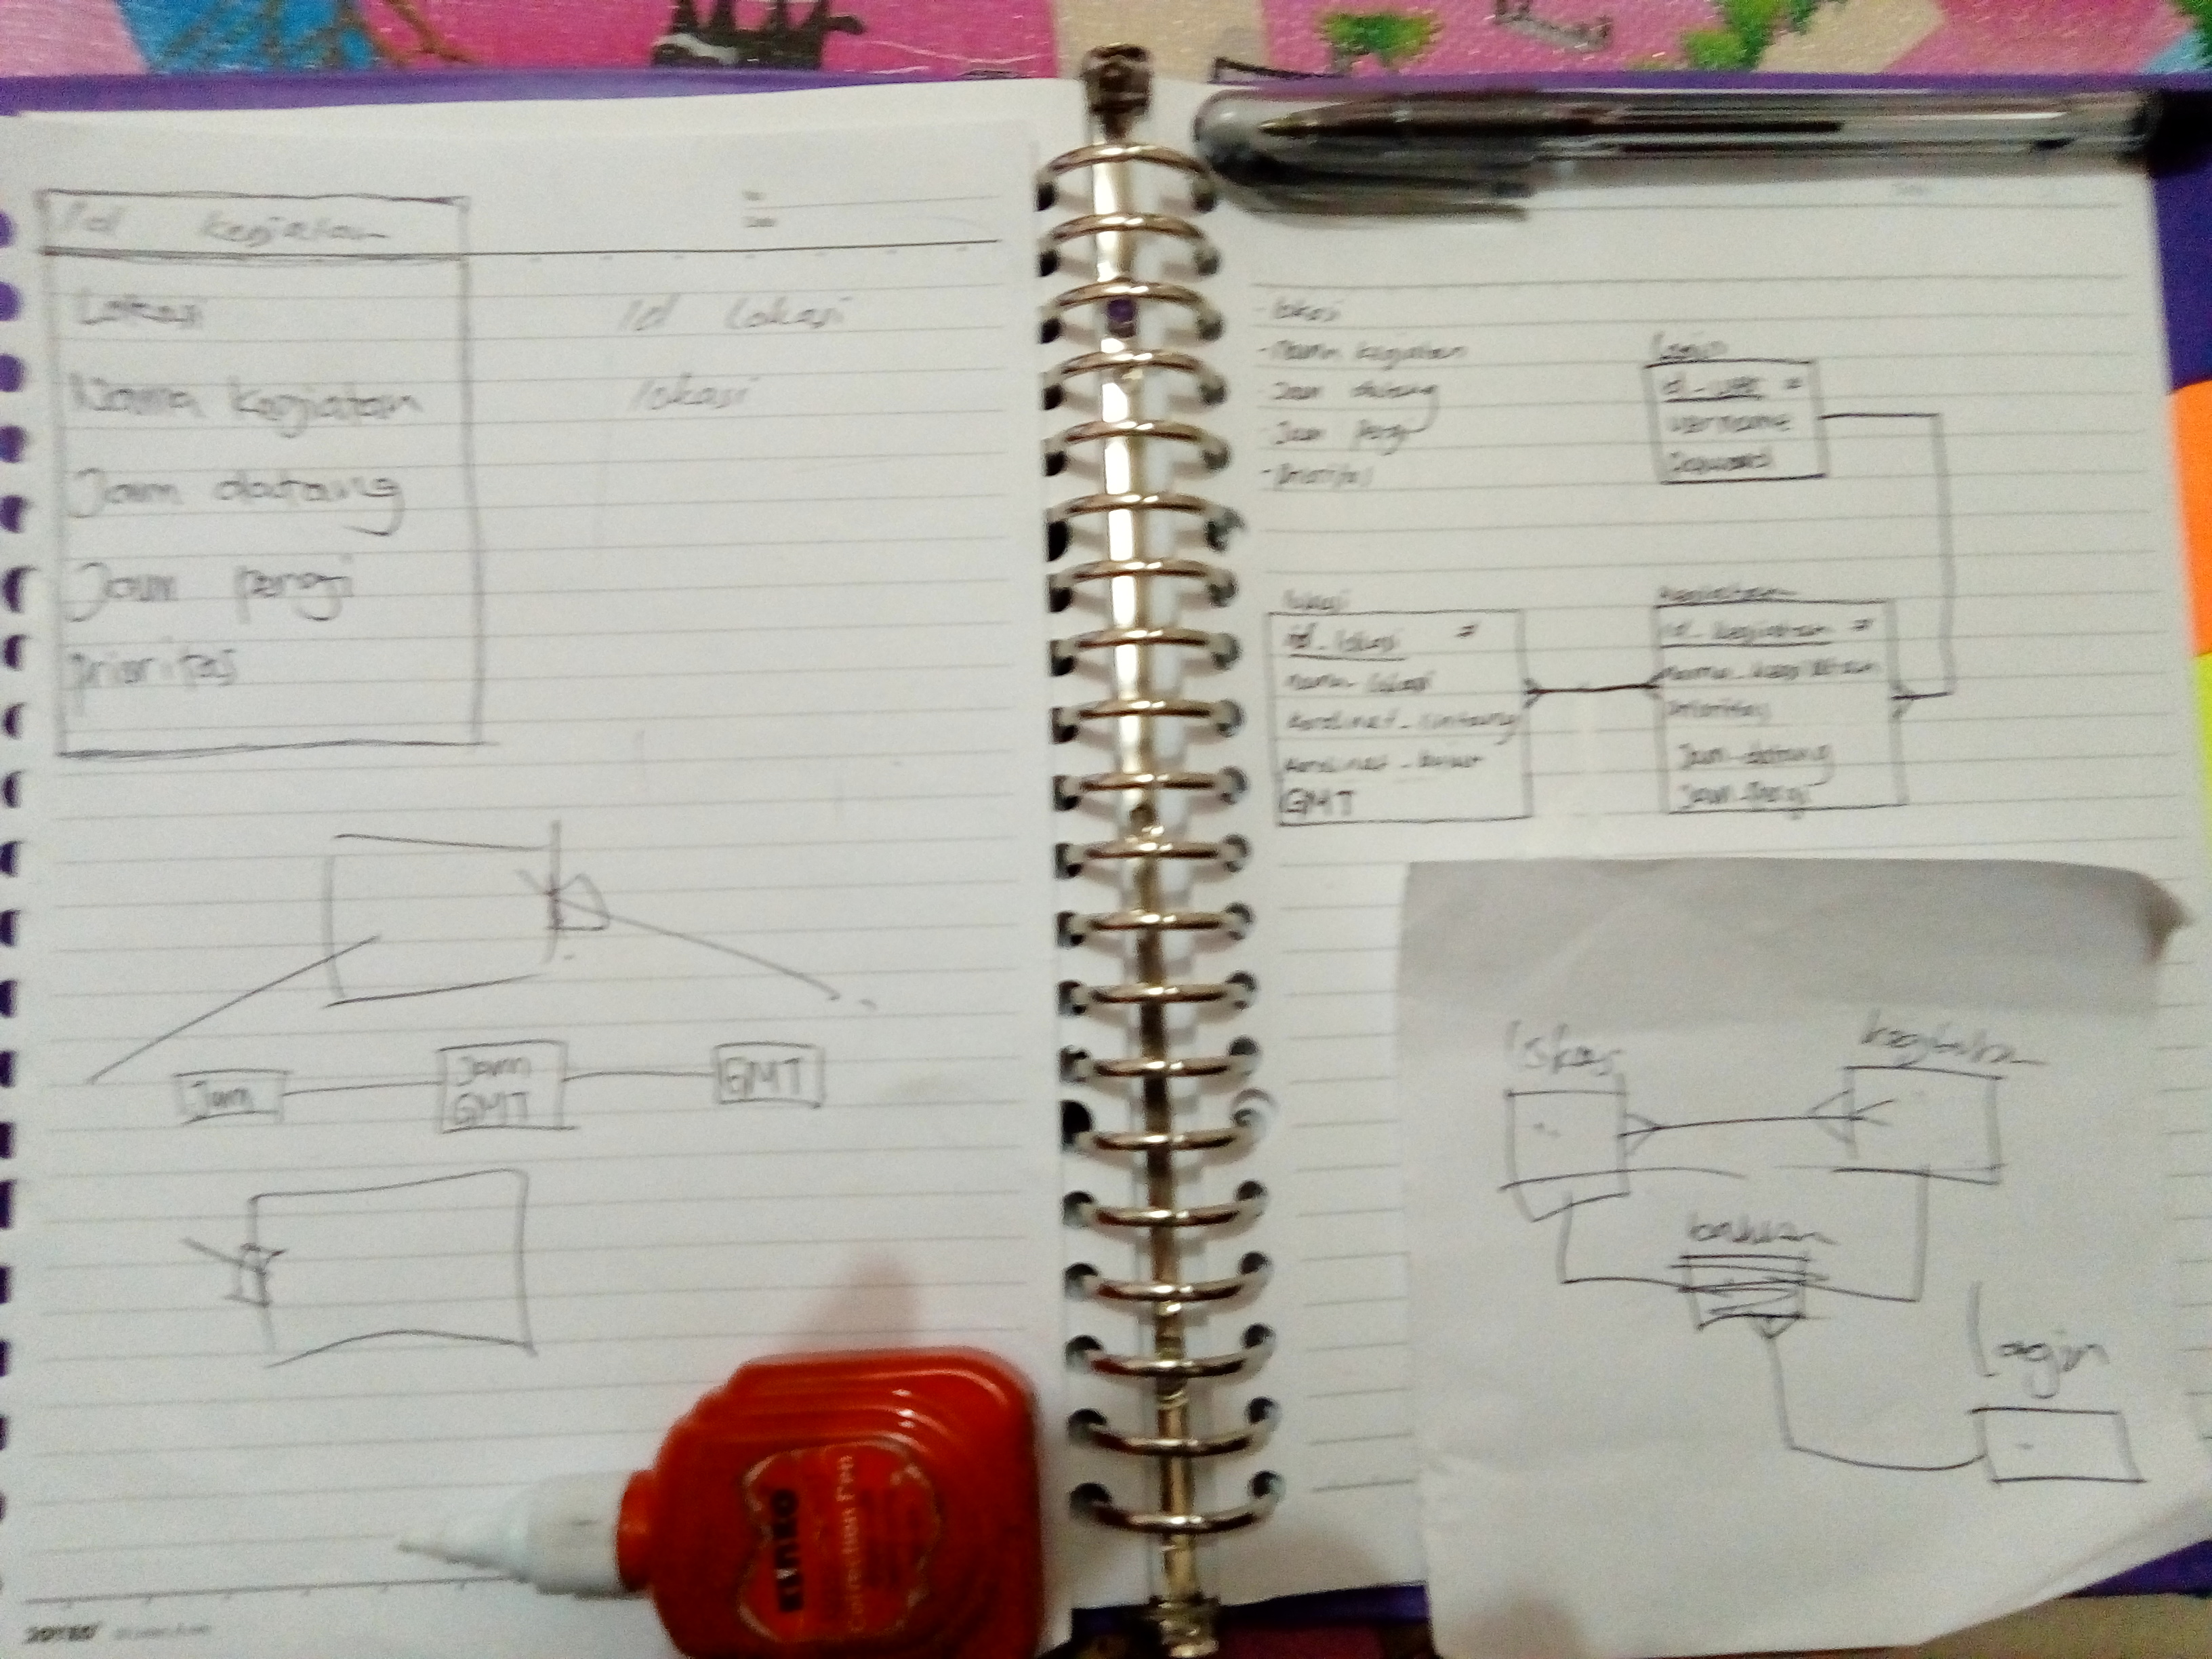 Id kegiatan
Lokasi
Nama kegiatan
Jam datang
Jam pergi
prioritas
Id lokasi
lokasi
Jam
Jam
GMT
GMT
KENKO
Correction Pen
- lokasi
- Nama kegiatan
- Jam datang
- Jam pergi
- prioritas
Login
id_user #
username
lokasi
id_lokasi #
nama_lokasi
kordinat_lintang
kordinat_bujur
GMT
kegiatan
id_kegiatan #
nama_kegiatan
prioritas
Jam_datang
Jam_pergi
lokasi
kegiatan
login